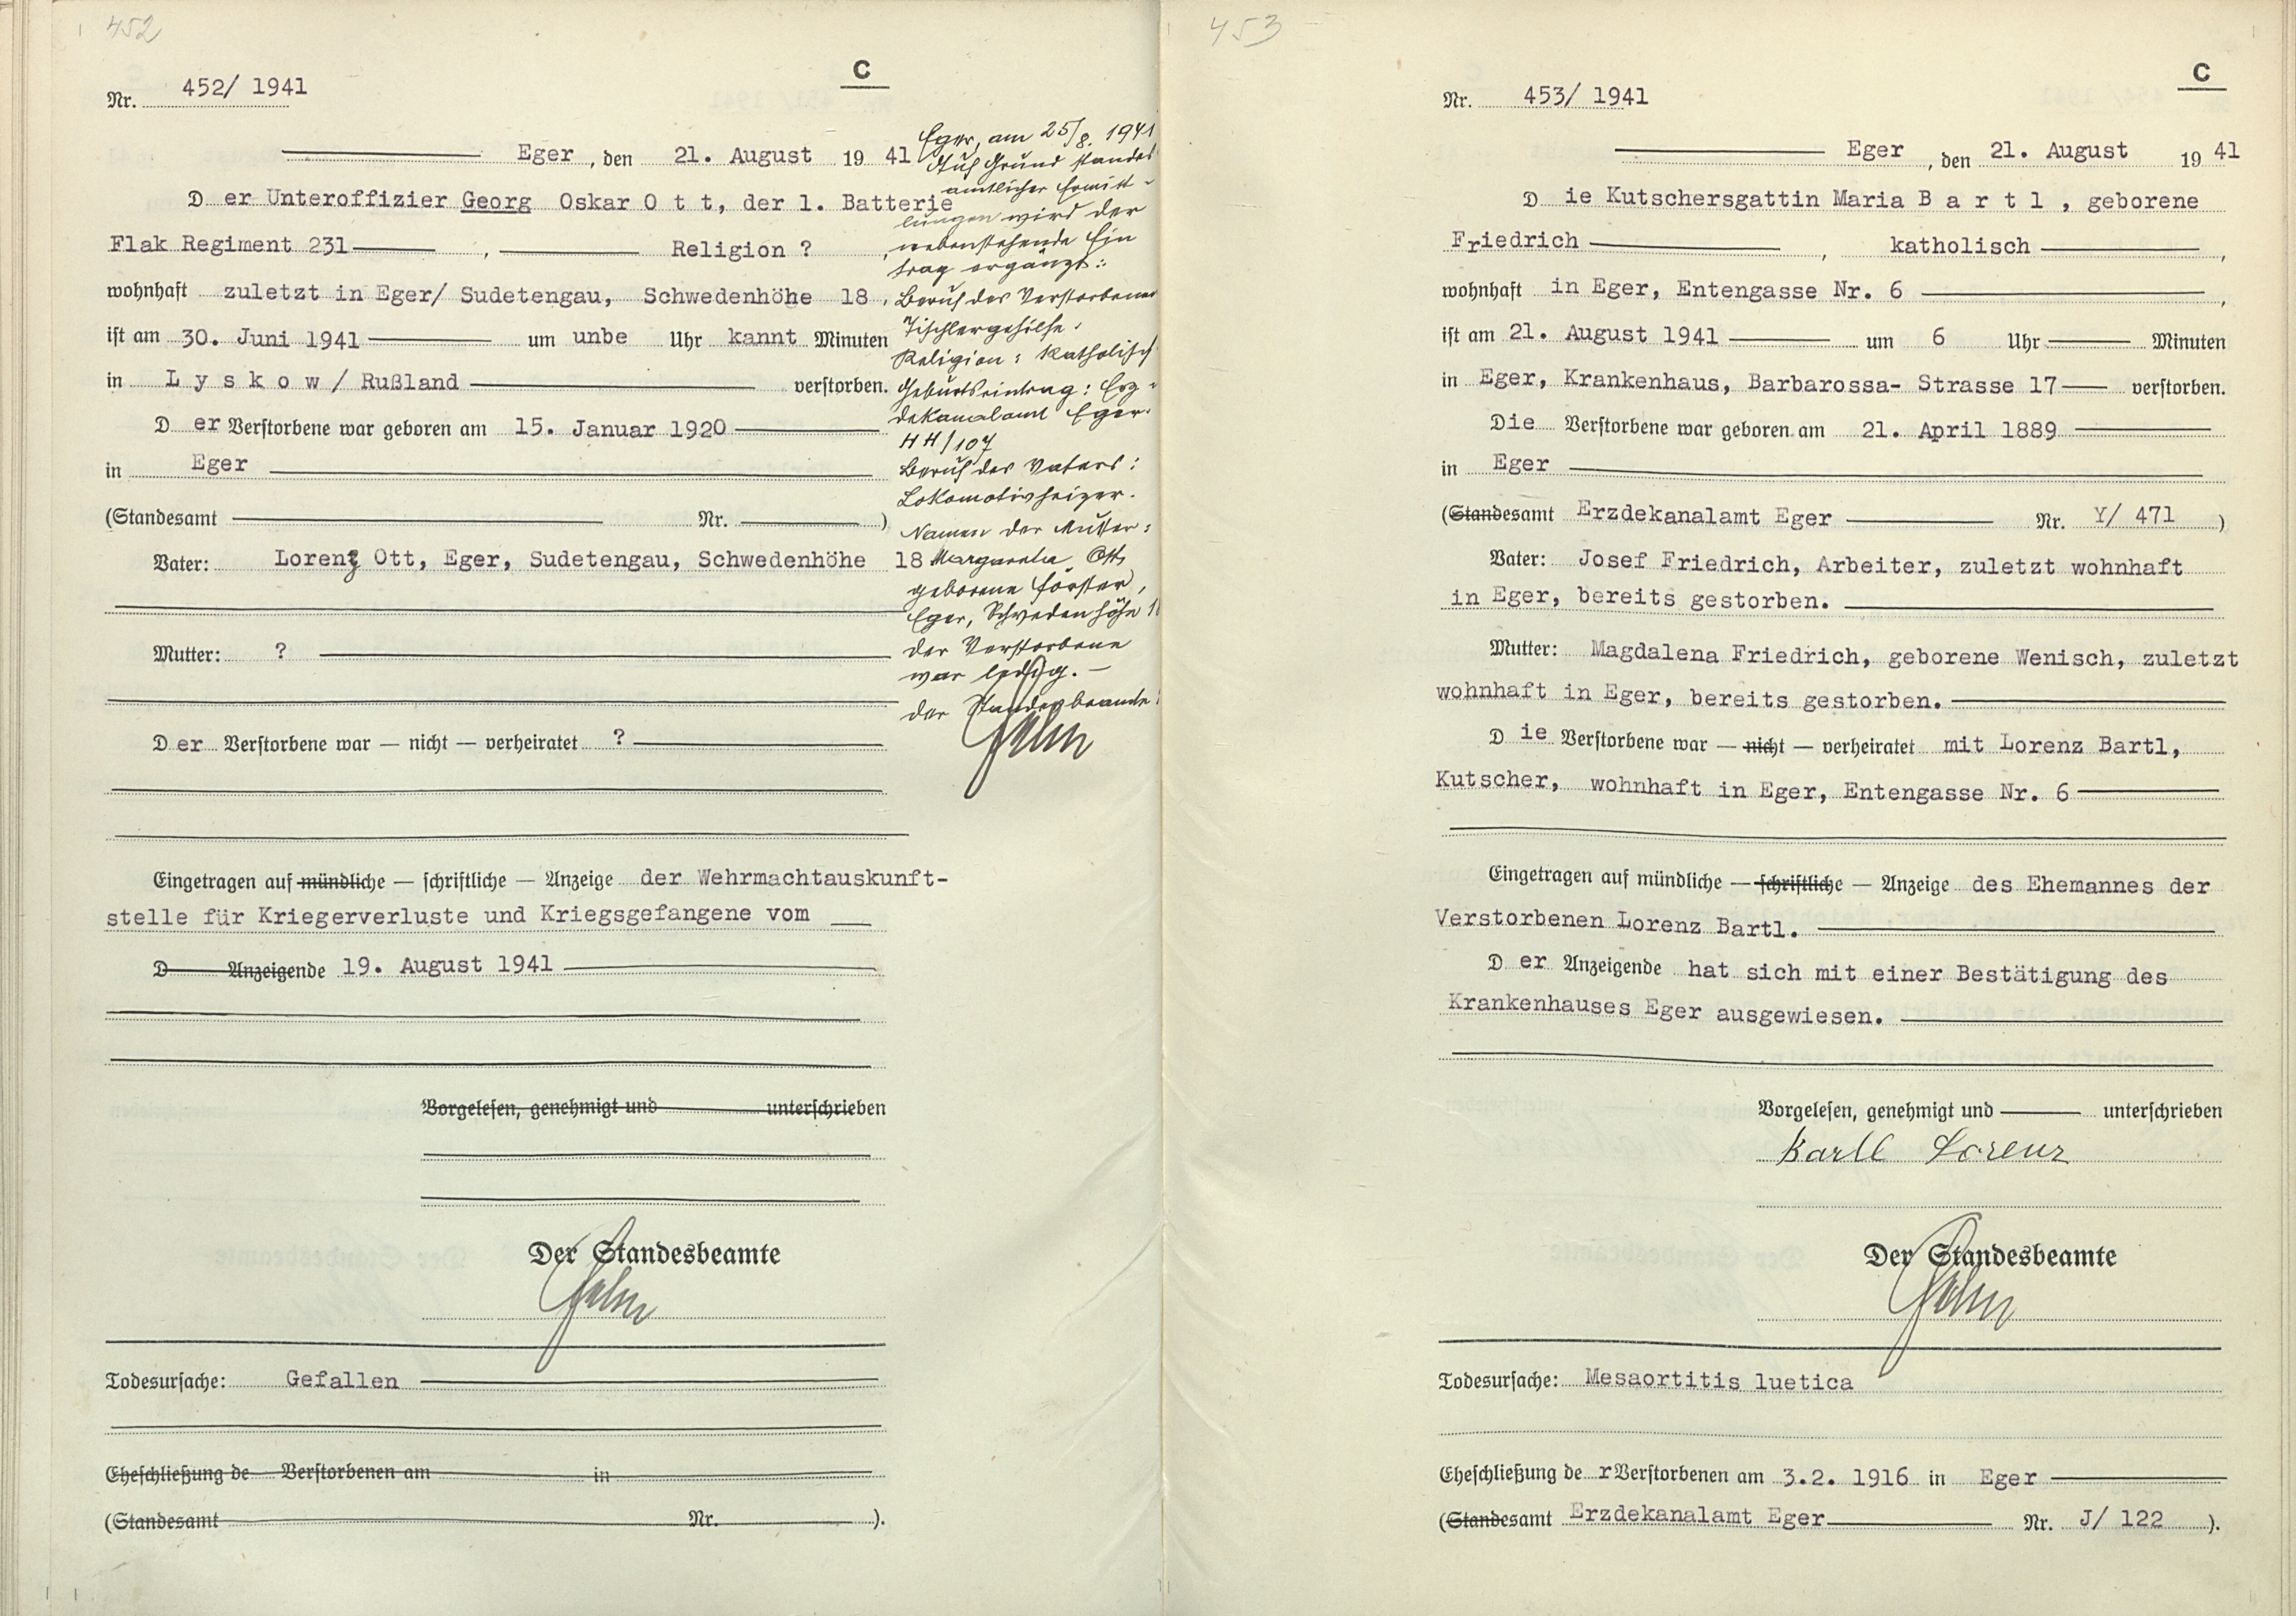 452
C
Nr. 452/ 1941
Eger, den 21. August 19 41
D er Unteroffizier Georg Oskar O t t, der 1. Batterie
Flak Regiment 231 , Religion ? ,
wohnhaft zuletzt in Eger/ Sudetengau, Schwedenhöhe 18 ,
ist am 30. Juni 1941 um unbe Uhr kannt Minuten
in L y s k o w / Rußland verstorben.
D er Verstorbene war geboren am 15. Januar 1920
in Eger
(Standesamt Nr. )
Vater: Lorenz Ott, Eger, Sudetengau, Schwedenhöhe 18
Mutter: ?
D er Verstorbene war — nicht — verheiratet ?
Eingetragen auf mündliche — schriftliche — Anzeige der Wehrmachtauskunft-
stelle für Kriegerverluste und Kriegsgefangene vom
D Anzeigende 19. August 1941
Vorgelesen, genehmigt und unterschrieben
Der Standesbeamte
Todesursache: Gefallen
Eheschließung de Verstorbenen am in
(Standesamt Nr. ).
Eger, am 25/8. 1941
Auf Grund standes
amtlicher Ermitt-
lungen wird der
nebenstehende Ein
trag ergänzt:
Beruf des Verstorbenen
Tischlergehilfe.
Religion: Katholisch
Geburtseintrag: Erz-
dekanalamt Eger.
HH/107
Beruf des Vaters:
Lokomotivheizer.
Namen der Mutter:
Margaretha Ott,
geborene Förster,
Eger, Schwedenhöhe 1
der Verstorbene
war ledig. —
der Standesbeamte:
453
C
Nr. 453/ 1941
Eger , den 21. August 19 41
D ie Kutschersgattin Maria B a r t l , geborene
Friedrich , katholisch ,
wohnhaft in Eger, Entengasse Nr. 6 ,
ist am 21. August 1941 um 6 Uhr Minuten
in Eger, Krankenhaus, Barbarossa- Strasse 17 verstorben.
Die Verstorbene war geboren am 21. April 1889
in Eger
(Standesamt Erzdekanalamt Eger Nr. Y/ 471 )
Vater: Josef Friedrich, Arbeiter, zuletzt wohnhaft
in Eger, bereits gestorben.
Mutter: Magdalena Friedrich, geborene Wenisch, zuletzt
wohnhaft in Eger, bereits gestorben.
D ie Verstorbene war — nicht — verheiratet mit Lorenz Bartl,
Kutscher, wohnhaft in Eger, Entengasse Nr. 6
Eingetragen auf mündliche — schriftliche — Anzeige des Ehemannes der
Verstorbenen Lorenz Bartl.
D er Anzeigende hat sich mit einer Bestätigung des
Krankenhauses Eger ausgewiesen.
Vorgelesen, genehmigt und unterschrieben
Bartl Lorenz
Der Standesbeamte
Todesursache: Mesaortitis luetica
Eheschließung de r Verstorbenen am 3.2. 1916 in Eger
(Standesamt Erzdekanalamt Eger Nr. J/ 122 ).